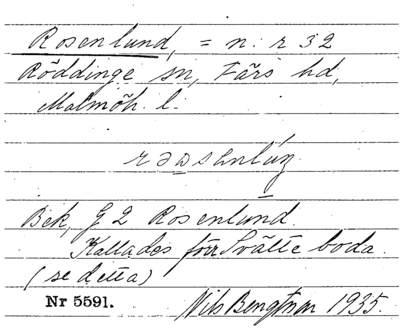 Rosenlund, = n: r 32
Röddinge sn, Färs hd,
Malmöh. l.
Bek, G 2 Rosenlund.
Kallades förr Svälteboda.
(se detta)
Nr 5591. Nils Bengtsson 1935.